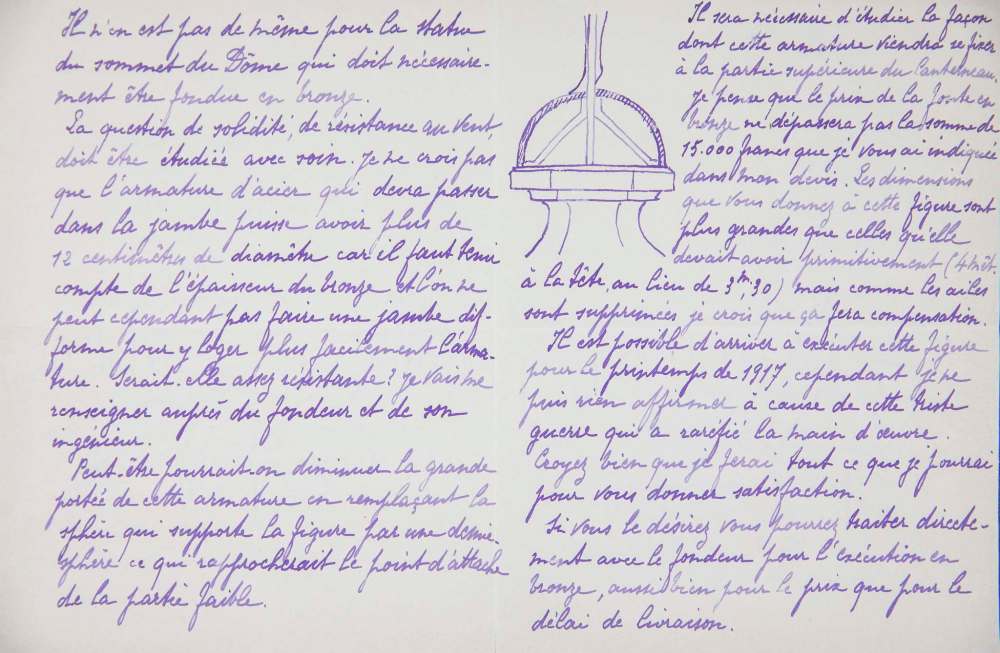 Il n'en est pas de même pour la statue
du sommet du Dôme qui doit nécessaire-
ment être fondue en bronze.
La question de solidité, de résistance au vent
doit être étudiée avec soin. Je ne crois pas
que l'armature d'acier qui devra passer
dans la jambe puisse avoir plus de
12 centimètres de diamètre car il faut tenir
compte de l'épaisseur du bronze et l'on ne
peut cependant pas faire une jambe dif-
forme pour y loger plus facilement l'arma-
ture. Serait-elle assez résistante? Je vais me
renseigner auprès du fondeur et de son
ingénieur.
Peut-être pourrait-on diminuer la grande
portée de cette armature en remplaçant la
sphère qui supporte la figure par une demi-
sphère ce qui rapprocherait le point d'attache
de la partie faible.
Il sera nécessaire d'étudier la façon
dont cette armature viendra se fixer
à la partie supérieure du lanterneau.
Je pense que le prix de la fonte en
bronze ne dépassera pas la somme de
15.000 francs que je vous ai indiquée
dans mon devis. Les dimensions
que vous donnez à cette figure sont
plus grandes que celles qu'elle
devait avoir primitivement (4 mèt.
à la tête, au lieu de 3m,30) mais comme les ailes
sont supprimées je crois que ça fera compensation.
Il est possible d'arriver à exécuter cette figure
pour le printemps de 1917, cependant je ne
puis rien affirmer à cause de cette triste
guerre qui a raréfié la main d'œuvre.
Croyez bien que je ferai tout ce que je pourrai
pour vous donner satisfaction.
Si vous le désirez vous pourrez traiter directe-
ment avec le fondeur pour l'exécution en
bronze, aussi bien pour le prix que pour le
délai de livraison.